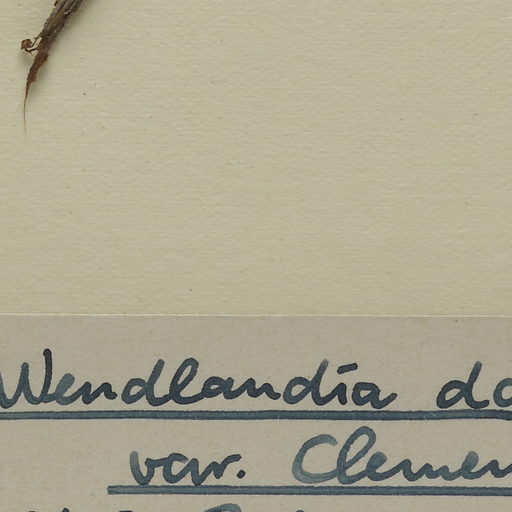 Wendlandia da
var. Clemen